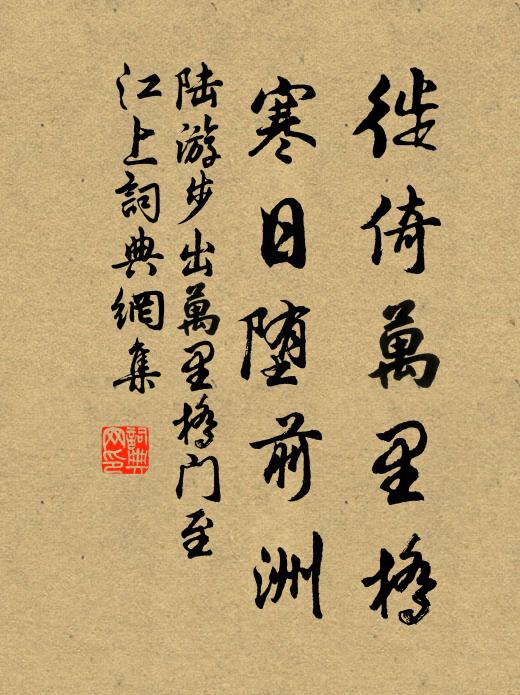 徙倚萬里橋
寒日堕前洲
陆游步出萬里橋门至
江上詞典網集
詞典
网印